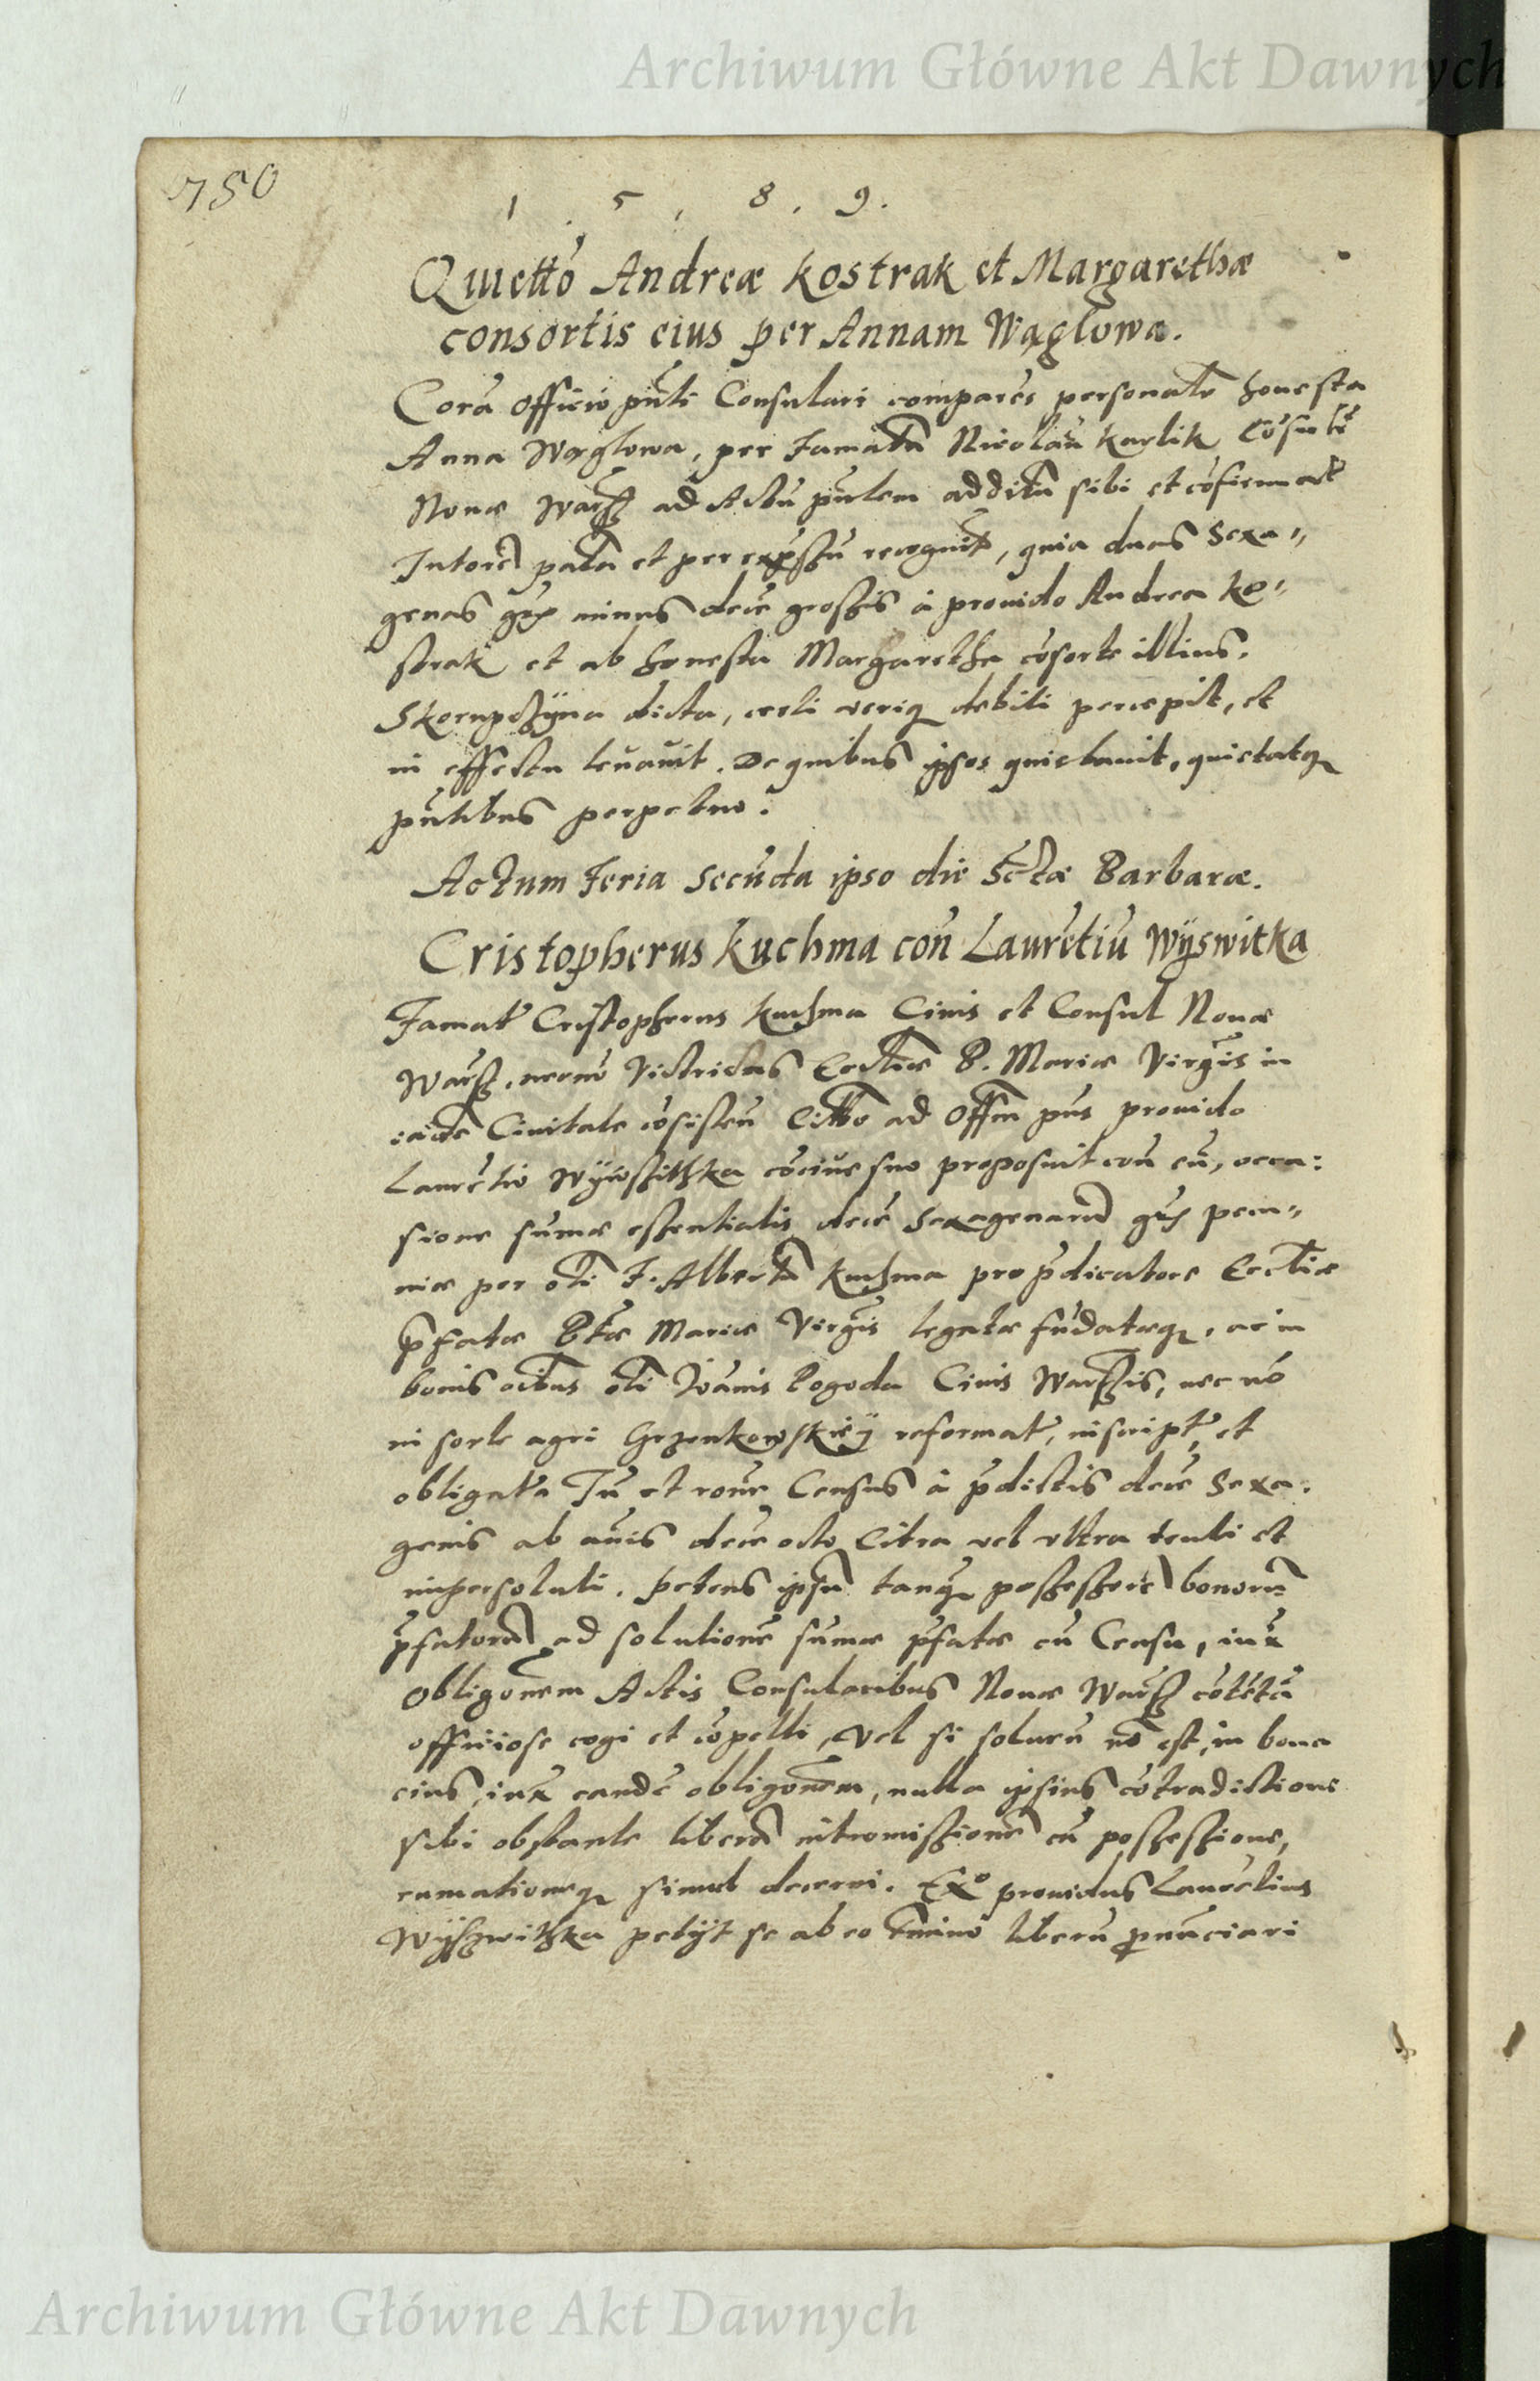 Archiwum Główne Akt Dawnych
750
1 . 5 , 8 . 9 .
Quietto Andreæ Kostrak et Margarethæ
consortis eius per Annam Wąglowa.
Corā officio pūti Consulari comparēs personalr honesta
Anna Wąglowa, per Famatū Nicolaū Karlik Cōsulē
Nouæ Warsz ad Actū pūtem additū sibi et cōfirmat
Tutorē palā et per expssū recognit, quia duas Sexa„
genas gr minus decē grossis à prouido Andrea Ko„
strak et ab honesta Margaretha cōsorte illius,
Skorupczyna dicta, certi veriq debiti percepit, et
in effectu leuauit. De quibus ipsos quietauit, quietatq
pūtibus perpetuo.
Actum Feria Secūda ipso die Sctæ Barbaræ.
Cristopherus Kuchma con Laurētiū Wÿswitka
Famat Cristopherus Kuchma Ciuis et Consul Nouæ
Warsz, necnō Victricus Ecctiæ B. Mariæ Virgis in
eadē Ciuitate cōsisteñ Citto ad Offm pñs prouido
Laurētio Wÿwszitzka cōciue suo proposuit con eū, occa:
sione sumæ essentialis decē Sexagenarū gr pecu„
niæ per oti F. Albertū Kuchma pro pdicatore Ecctiæ
pfatæ Btæ Mariæ Virgis legatæ fūdatæq, ac in
bonis oibus oti Ioānis Pogoda Ciuis Warszis, nec nō
in sorte agri Grzenkowskiÿ reformat, inscript et
obligata Tū et roñe Census à pdictis decē Sexa:
genis ab añis decē octo citra vel vltra tenti et
nō persoluti. Petens ipsū tanq possessorē bonorū
pfatorū ad solutionē sumæ pfatæ cū Censu, iux
obligonem Actis Consularibus Nouæ Warsz cōtētā
officiose cogi et cōpelli, Vel si soluēn nō est, in bona
eius, iux eandē obligonem, nulla ipsius cōtradictione
sibi obstante liberā intromissionē cū possessione,
rumationeq simul decerni. Exo prouidus Laurētius
Wÿszwitzka petÿt se ab eo tmino liberū pnūciari
Archiwum Główne Akt Dawnych